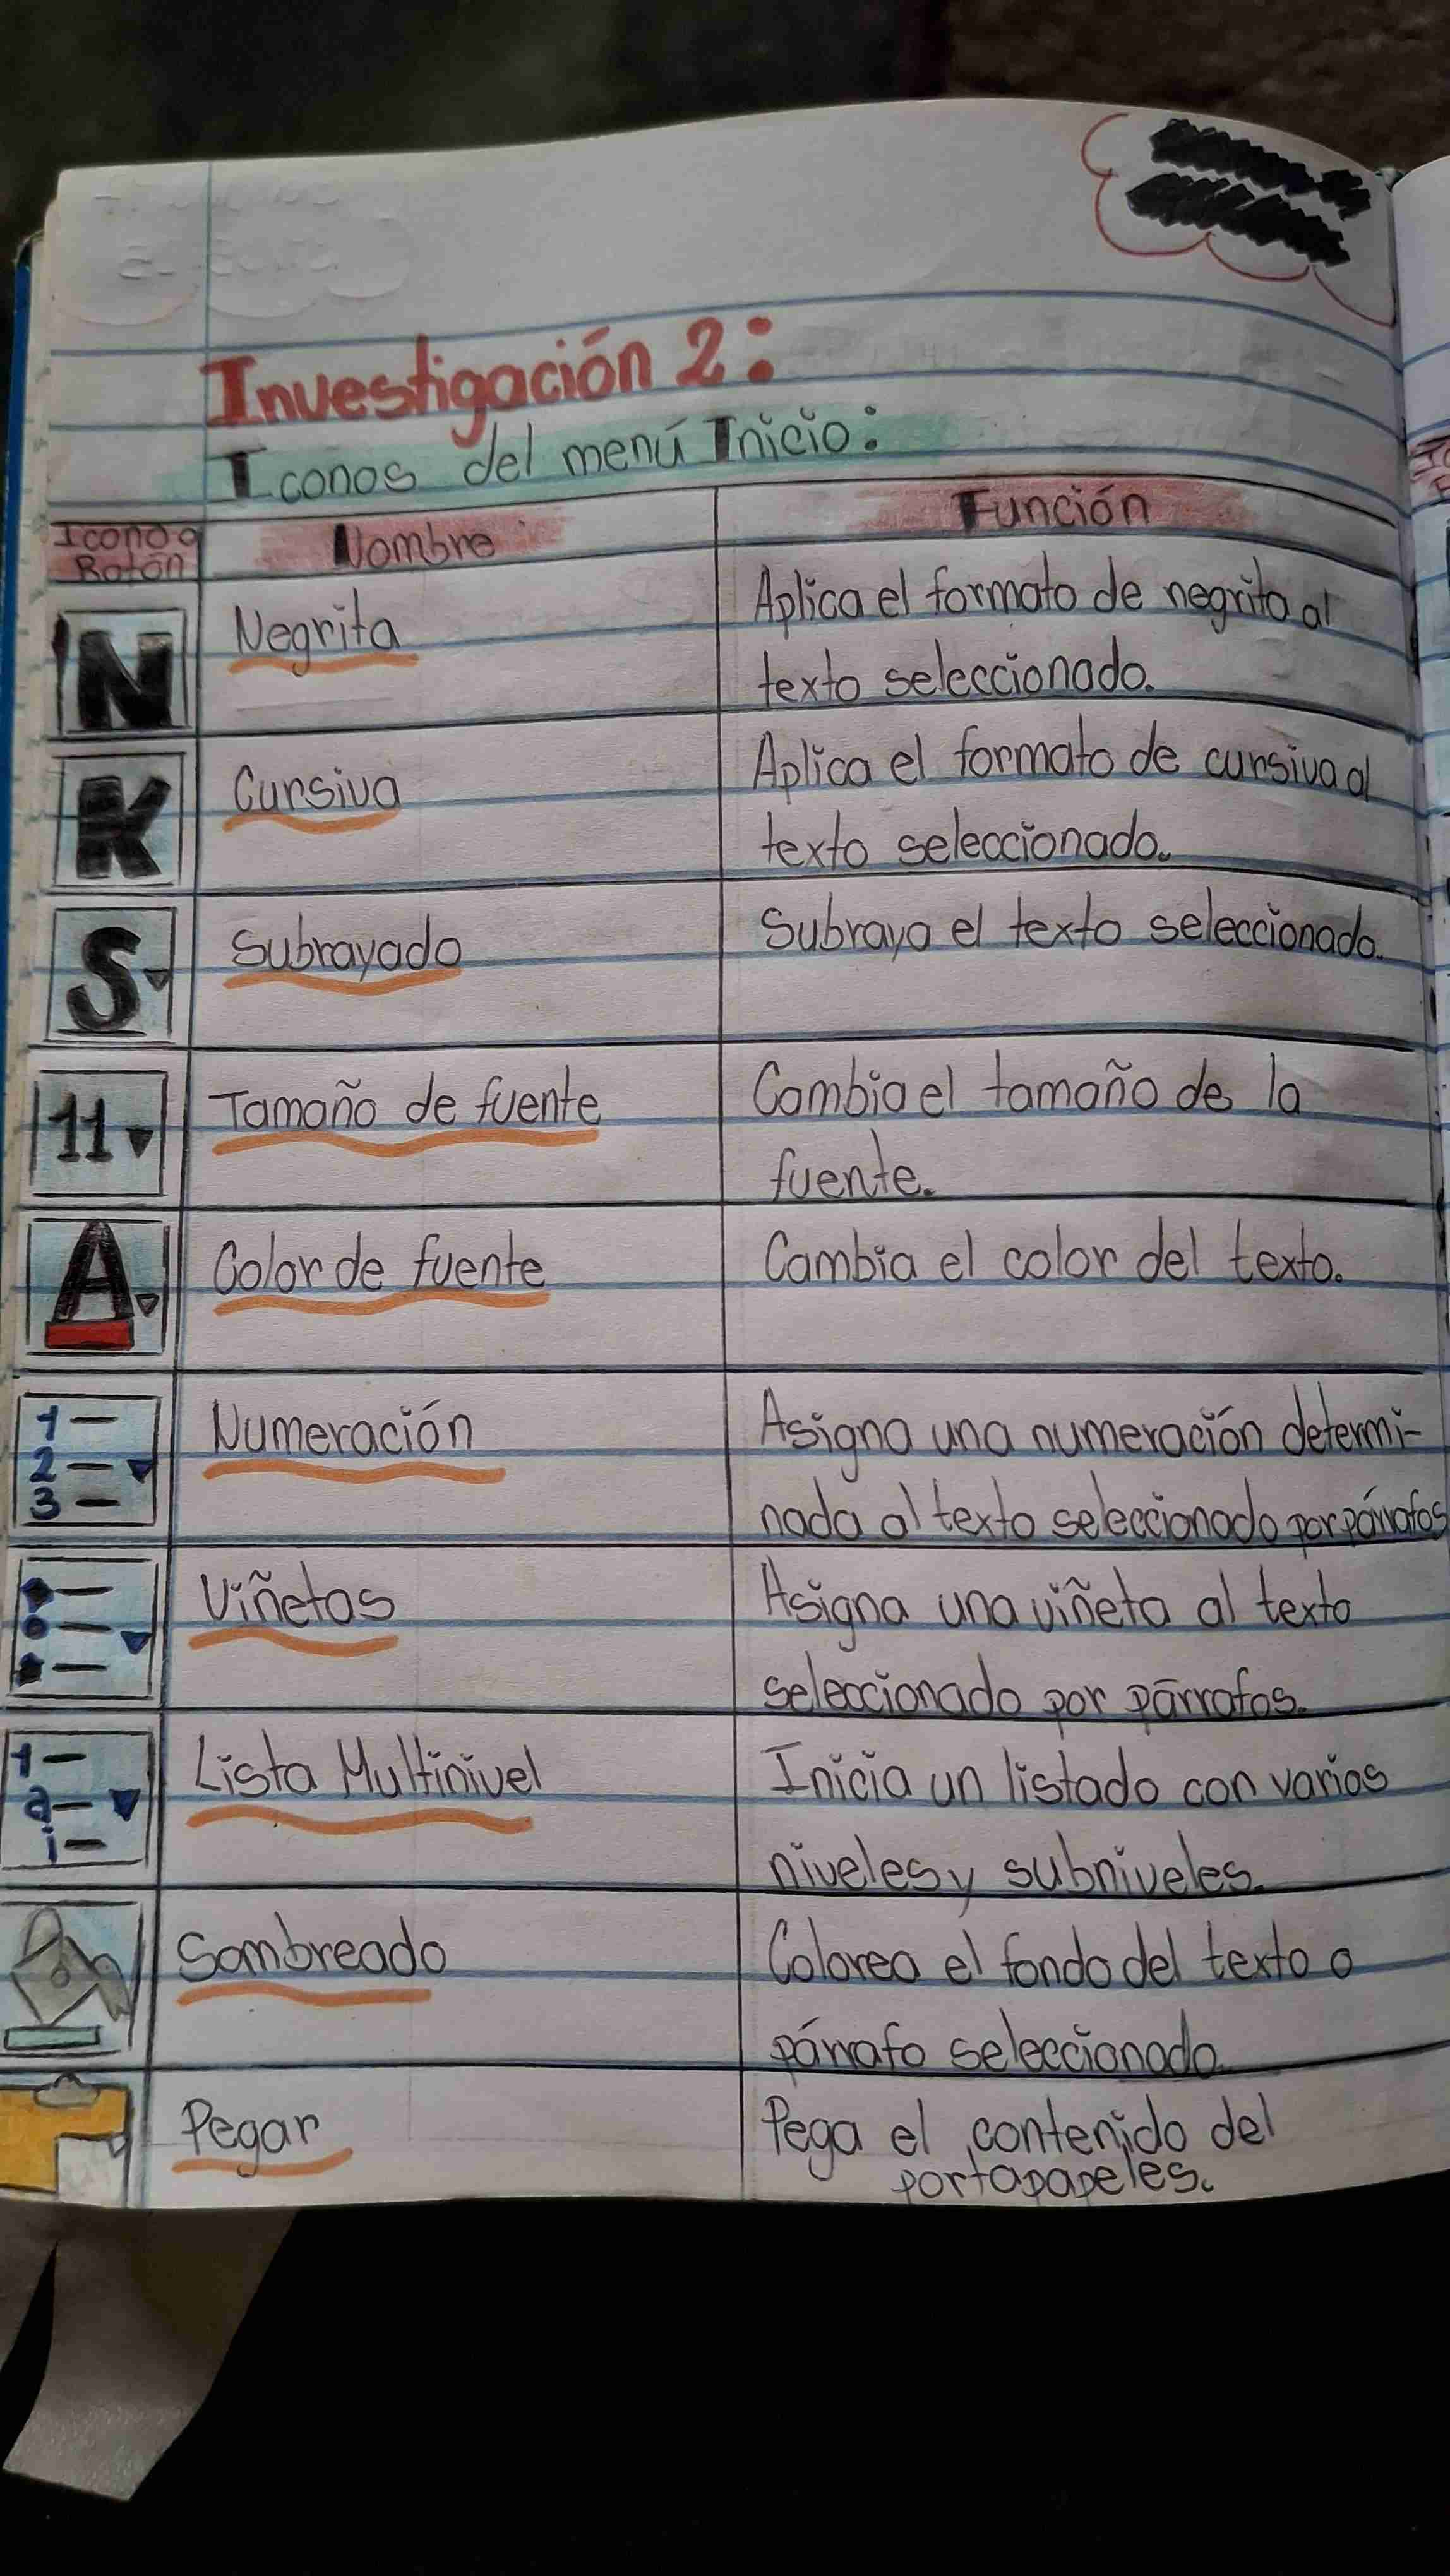 Investigación 2:
Iconos del menú Inicio:
Icono o
Botón
Nombre
Función
N
Negrita
Aplica el formato de negrita al
texto seleccionado.
K
Cursiva
Aplica el formato de cursiva al
texto seleccionado.
S
Subrayado
Subraya el texto seleccionado.
11
Tamaño de fuente
Cambia el tamaño de la
fuente.
A
Color de fuente
Cambia el color del texto.
1
2
3
Numeración
Asigna una numeración determi-
nada al texto seleccionado por párrafos
Viñetas
Asigna una viñeta al texto
seleccionado por párrafos.
1
a
i
Lista Multinivel
Inicia un listado con varios
niveles y subniveles.
Sombreado
Colorea el fondo del texto o
párrafo seleccionado
Pegar
Pega el contenido del
portapapeles.